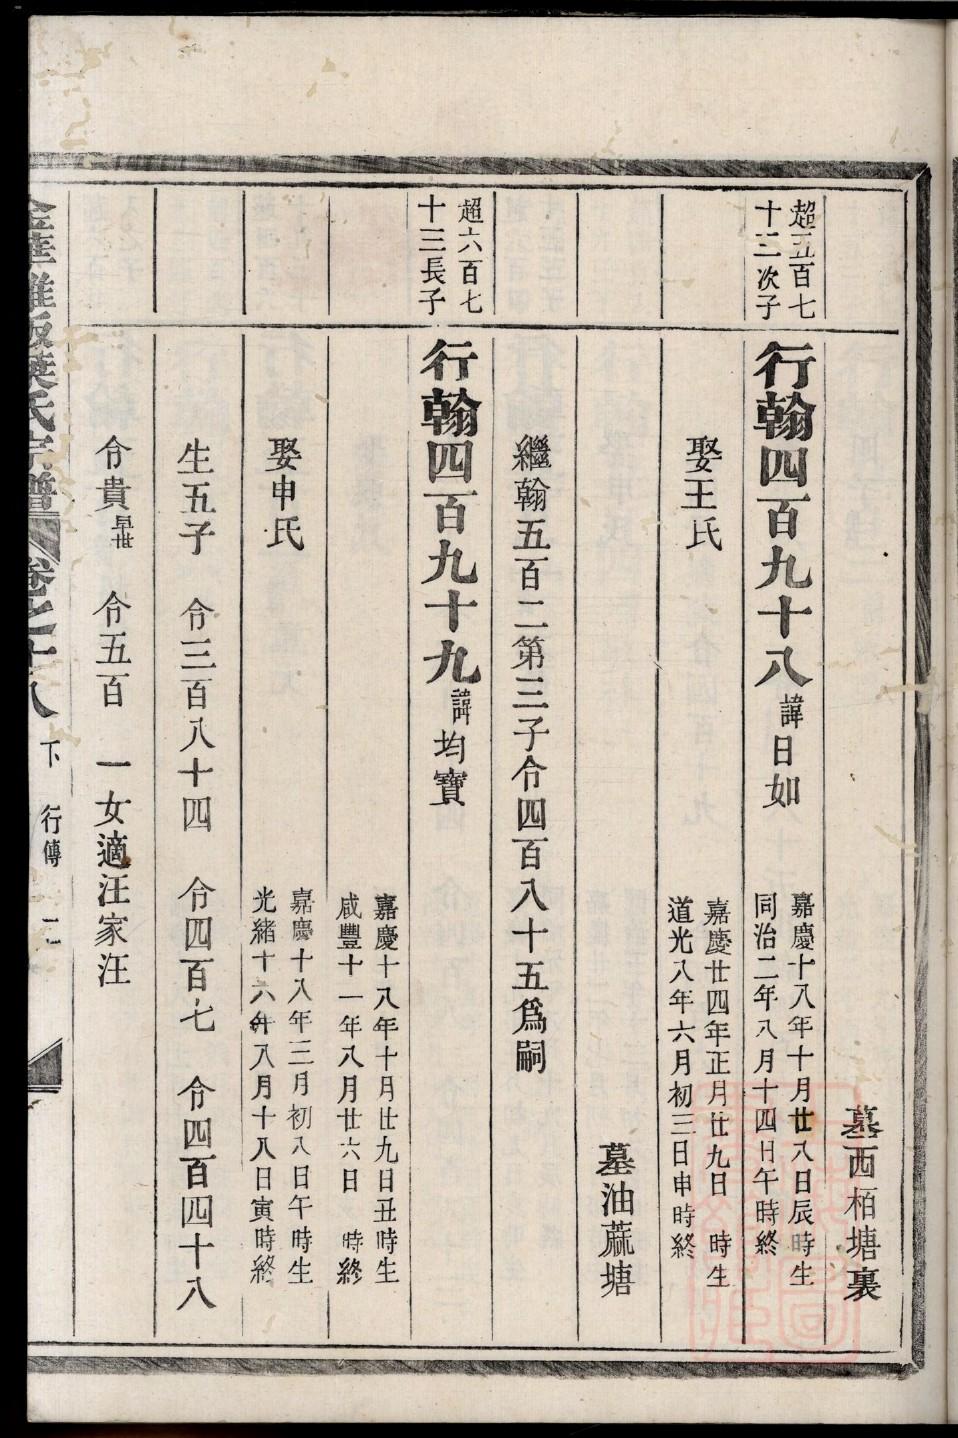 墓西栢塘裏
超五百七
十三次子
行翰四百九十八 諱日如
嘉慶十八年十月廿八日辰時生
同治二年八月十四日午時終
娶王氏
嘉慶廿四年正月廿九日 時生
道光八年六月初三日申時終
墓油蔴塘
繼翰五百二第三子令四百八十五爲嗣
超六百七
十三長子
行翰四百九十九 諱均寶
嘉慶十八年十月廿九日丑時生
咸豐十一年八月廿六日 時終
娶申氏
嘉慶十八年三月初八日午時生
光緒十六年八月十八日寅時終
生五子 令三百八十四 令四百七 令四百四十八
令貴 早世 令五百 一女適汪家汪
金華雅畈葉氏宗譜 卷之十八 下 行傳